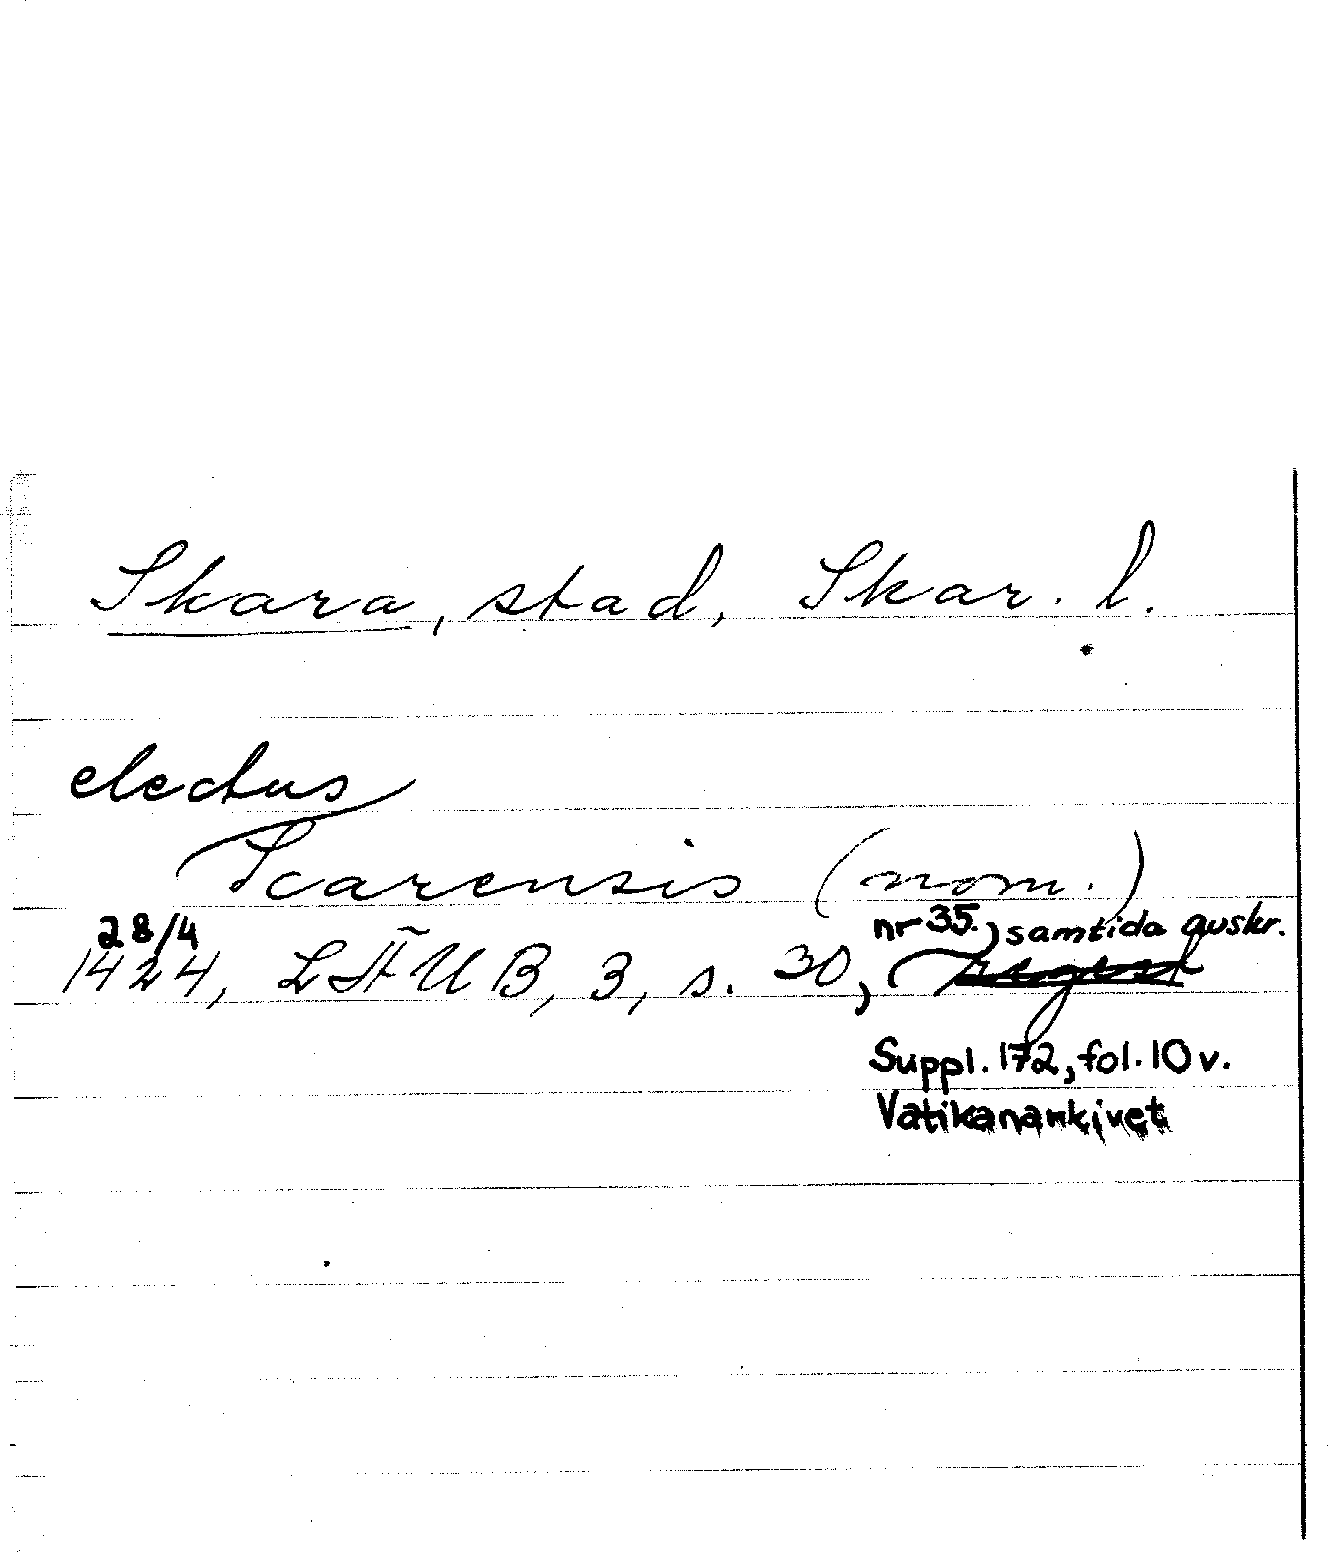 Skara, stad, Skar. l.
electus
Scarensis (nom.)
28/4 nr 35., samtida avskr.
1424, LÄUB, 3, s. 30,
Suppl. 172, fol. 10 v.
Vatikanarkivet